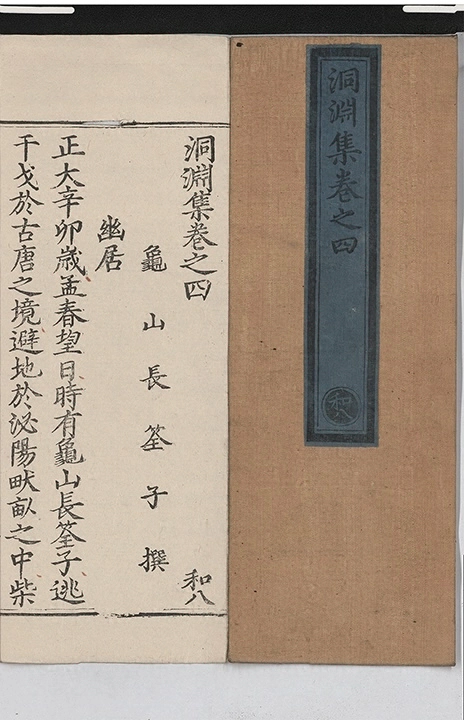 洞淵集卷之四
和八
洞淵集卷之四
和八
龜山長筌子撰
幽居
正大辛卯歲孟春望日時有龜山長筌子逃
干戈於古唐之境避地於泌陽畎畝之中柴